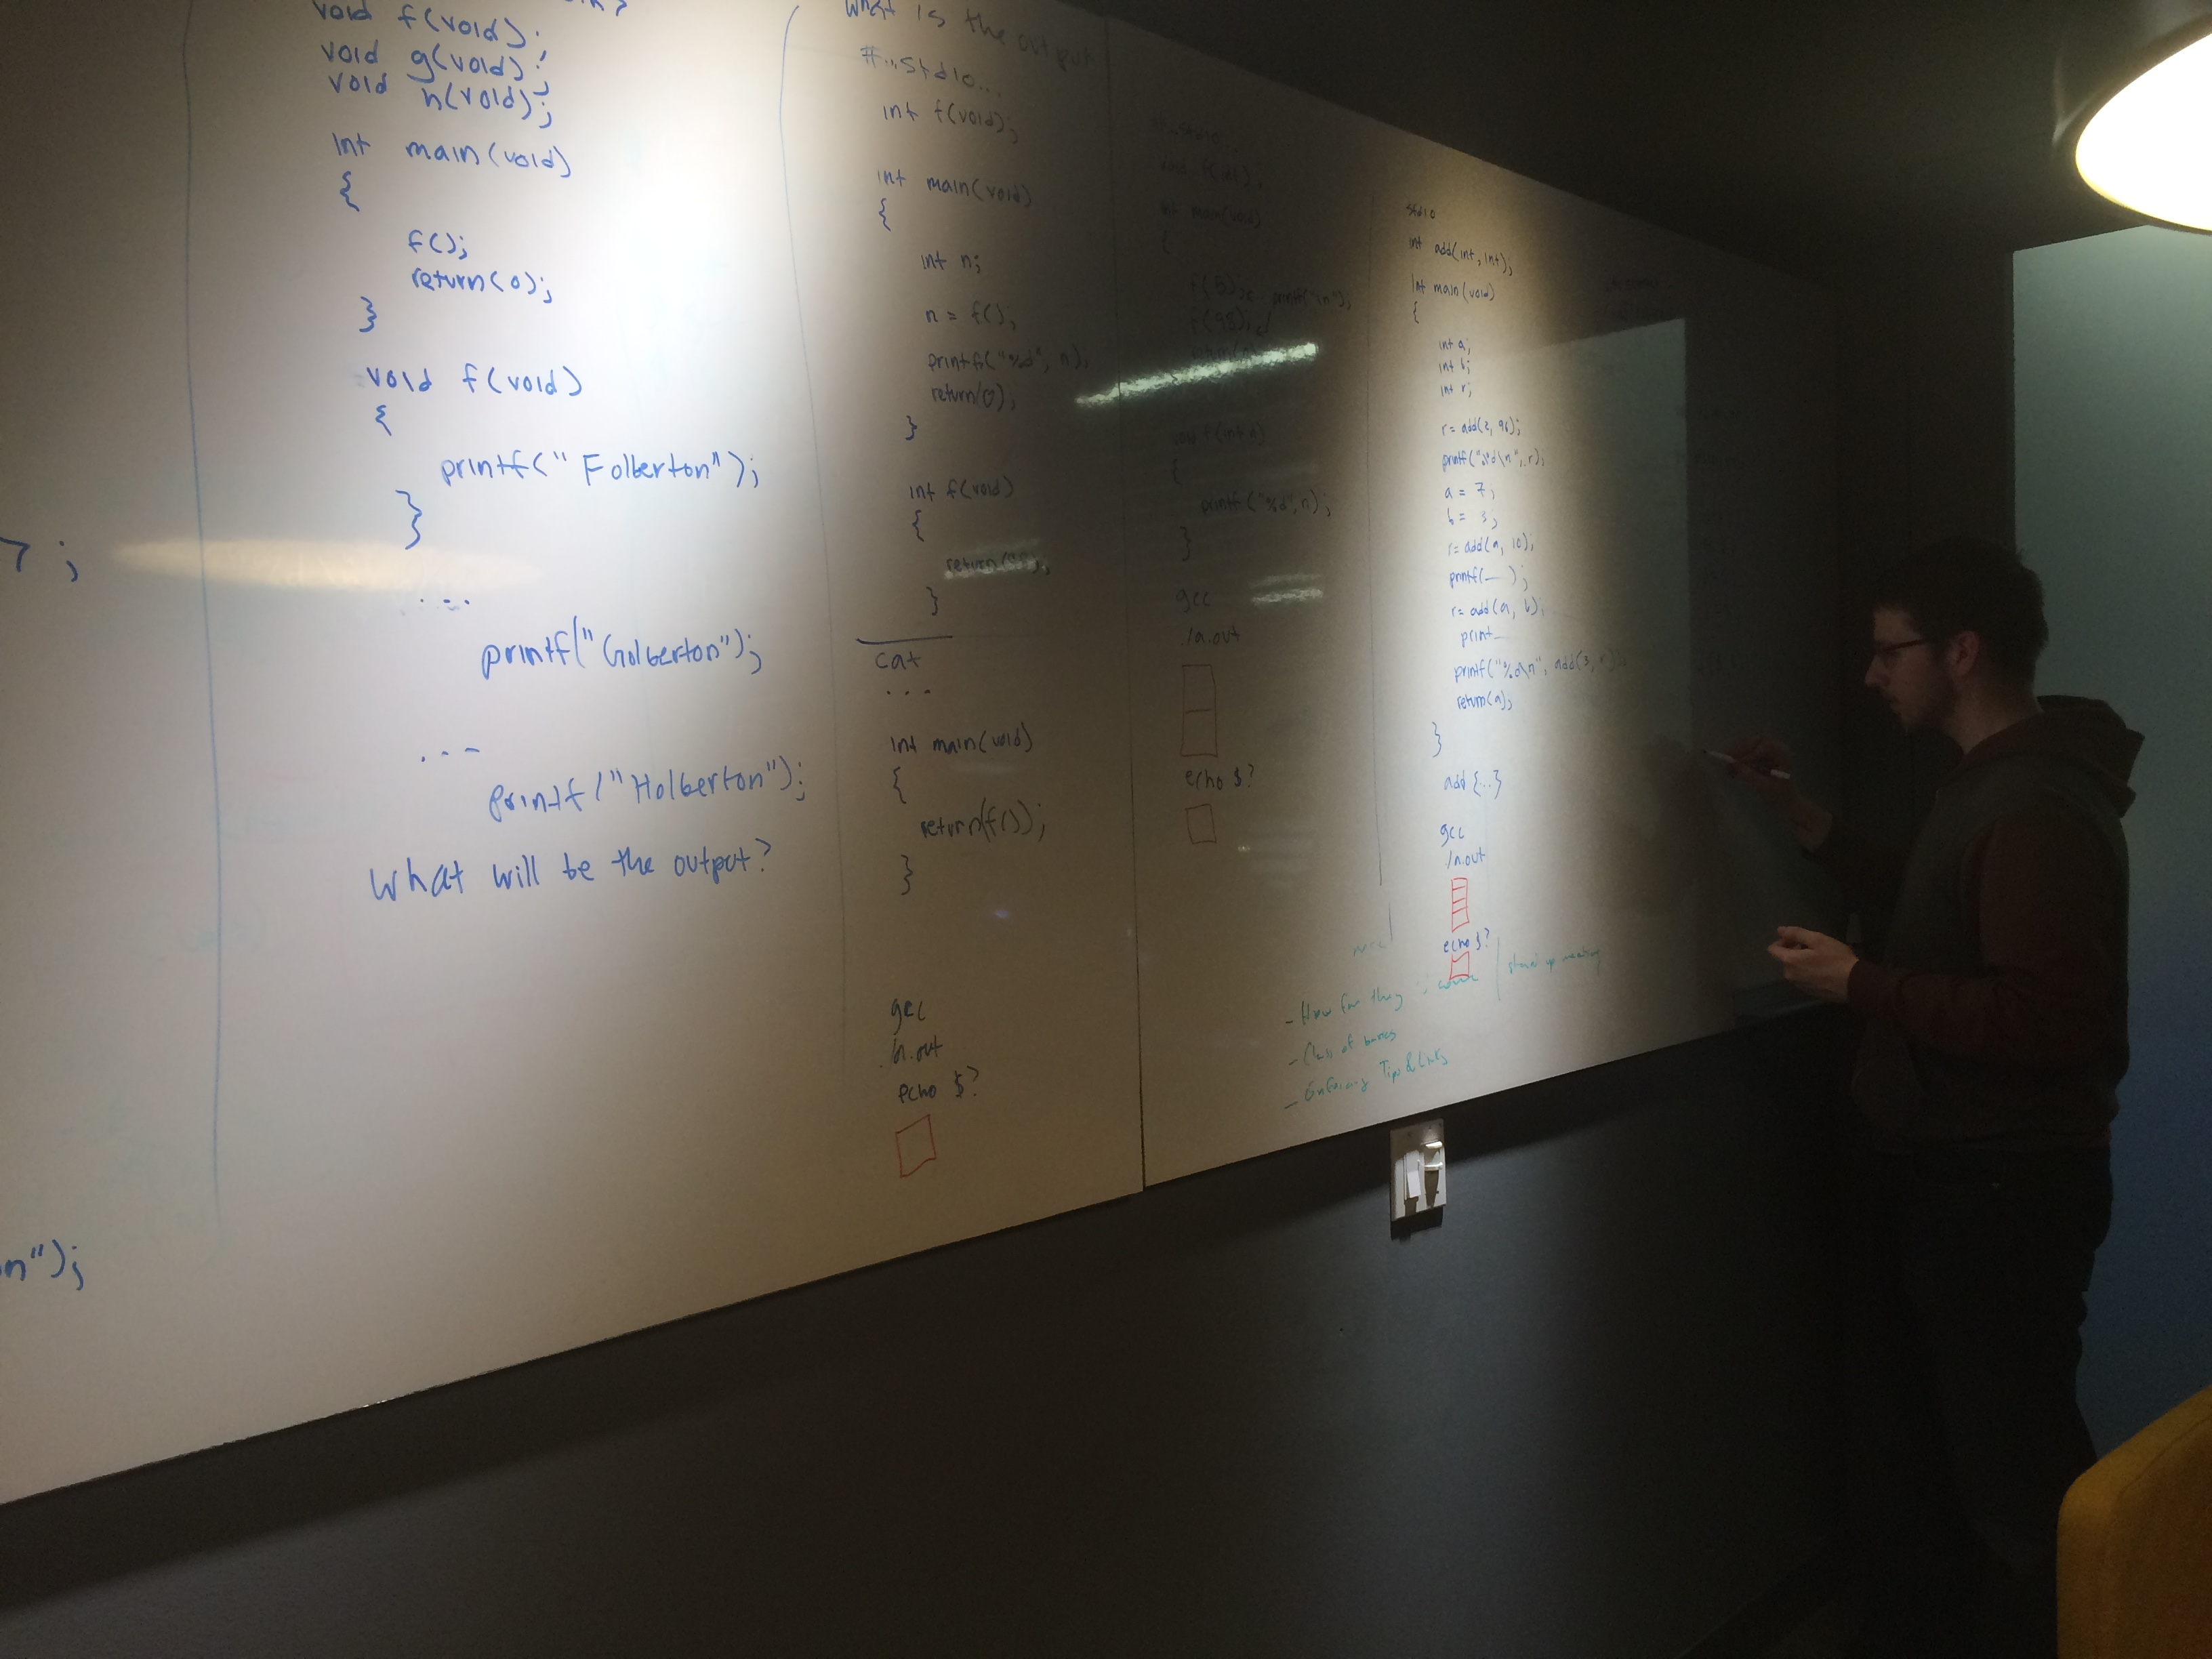 7;
n");
void f(void);
void g(void);
void h(void);
int main(void)
{
f();
return(0);
}
void f(void)
{
printf("Folberton");
}
...
printf("Golberton");
...
printf("Holberton");
What will be the output?
What is the output
#...stdio...
int f(void);
int main(void)
{
int n;
n = f();
printf("%d", n);
return(0);
}
int f(void)
{
return(98);
}
cat
...
int main(void)
{
return(f());
}
gcc
./a.out
echo $?
int main(void)
{
f(5); printf("\n");
f(98);
{
printf("%d", n);
}
gcc
./a.out
echo $?
stdio
int add(int, int);
int main(void)
{
int a;
int b;
int r;
r = add(2, 96);
printf("%d\n", r);
a = 7;
b = 3;
r = add(a, 10);
printf(__);
r = add(a, b);
print__
printf("%d\n", add(3, r));
return(a);
}
add {...}
gcc
./a.out
echo $?
stand up meeting
- How far they
- Class of
- Tips & Links